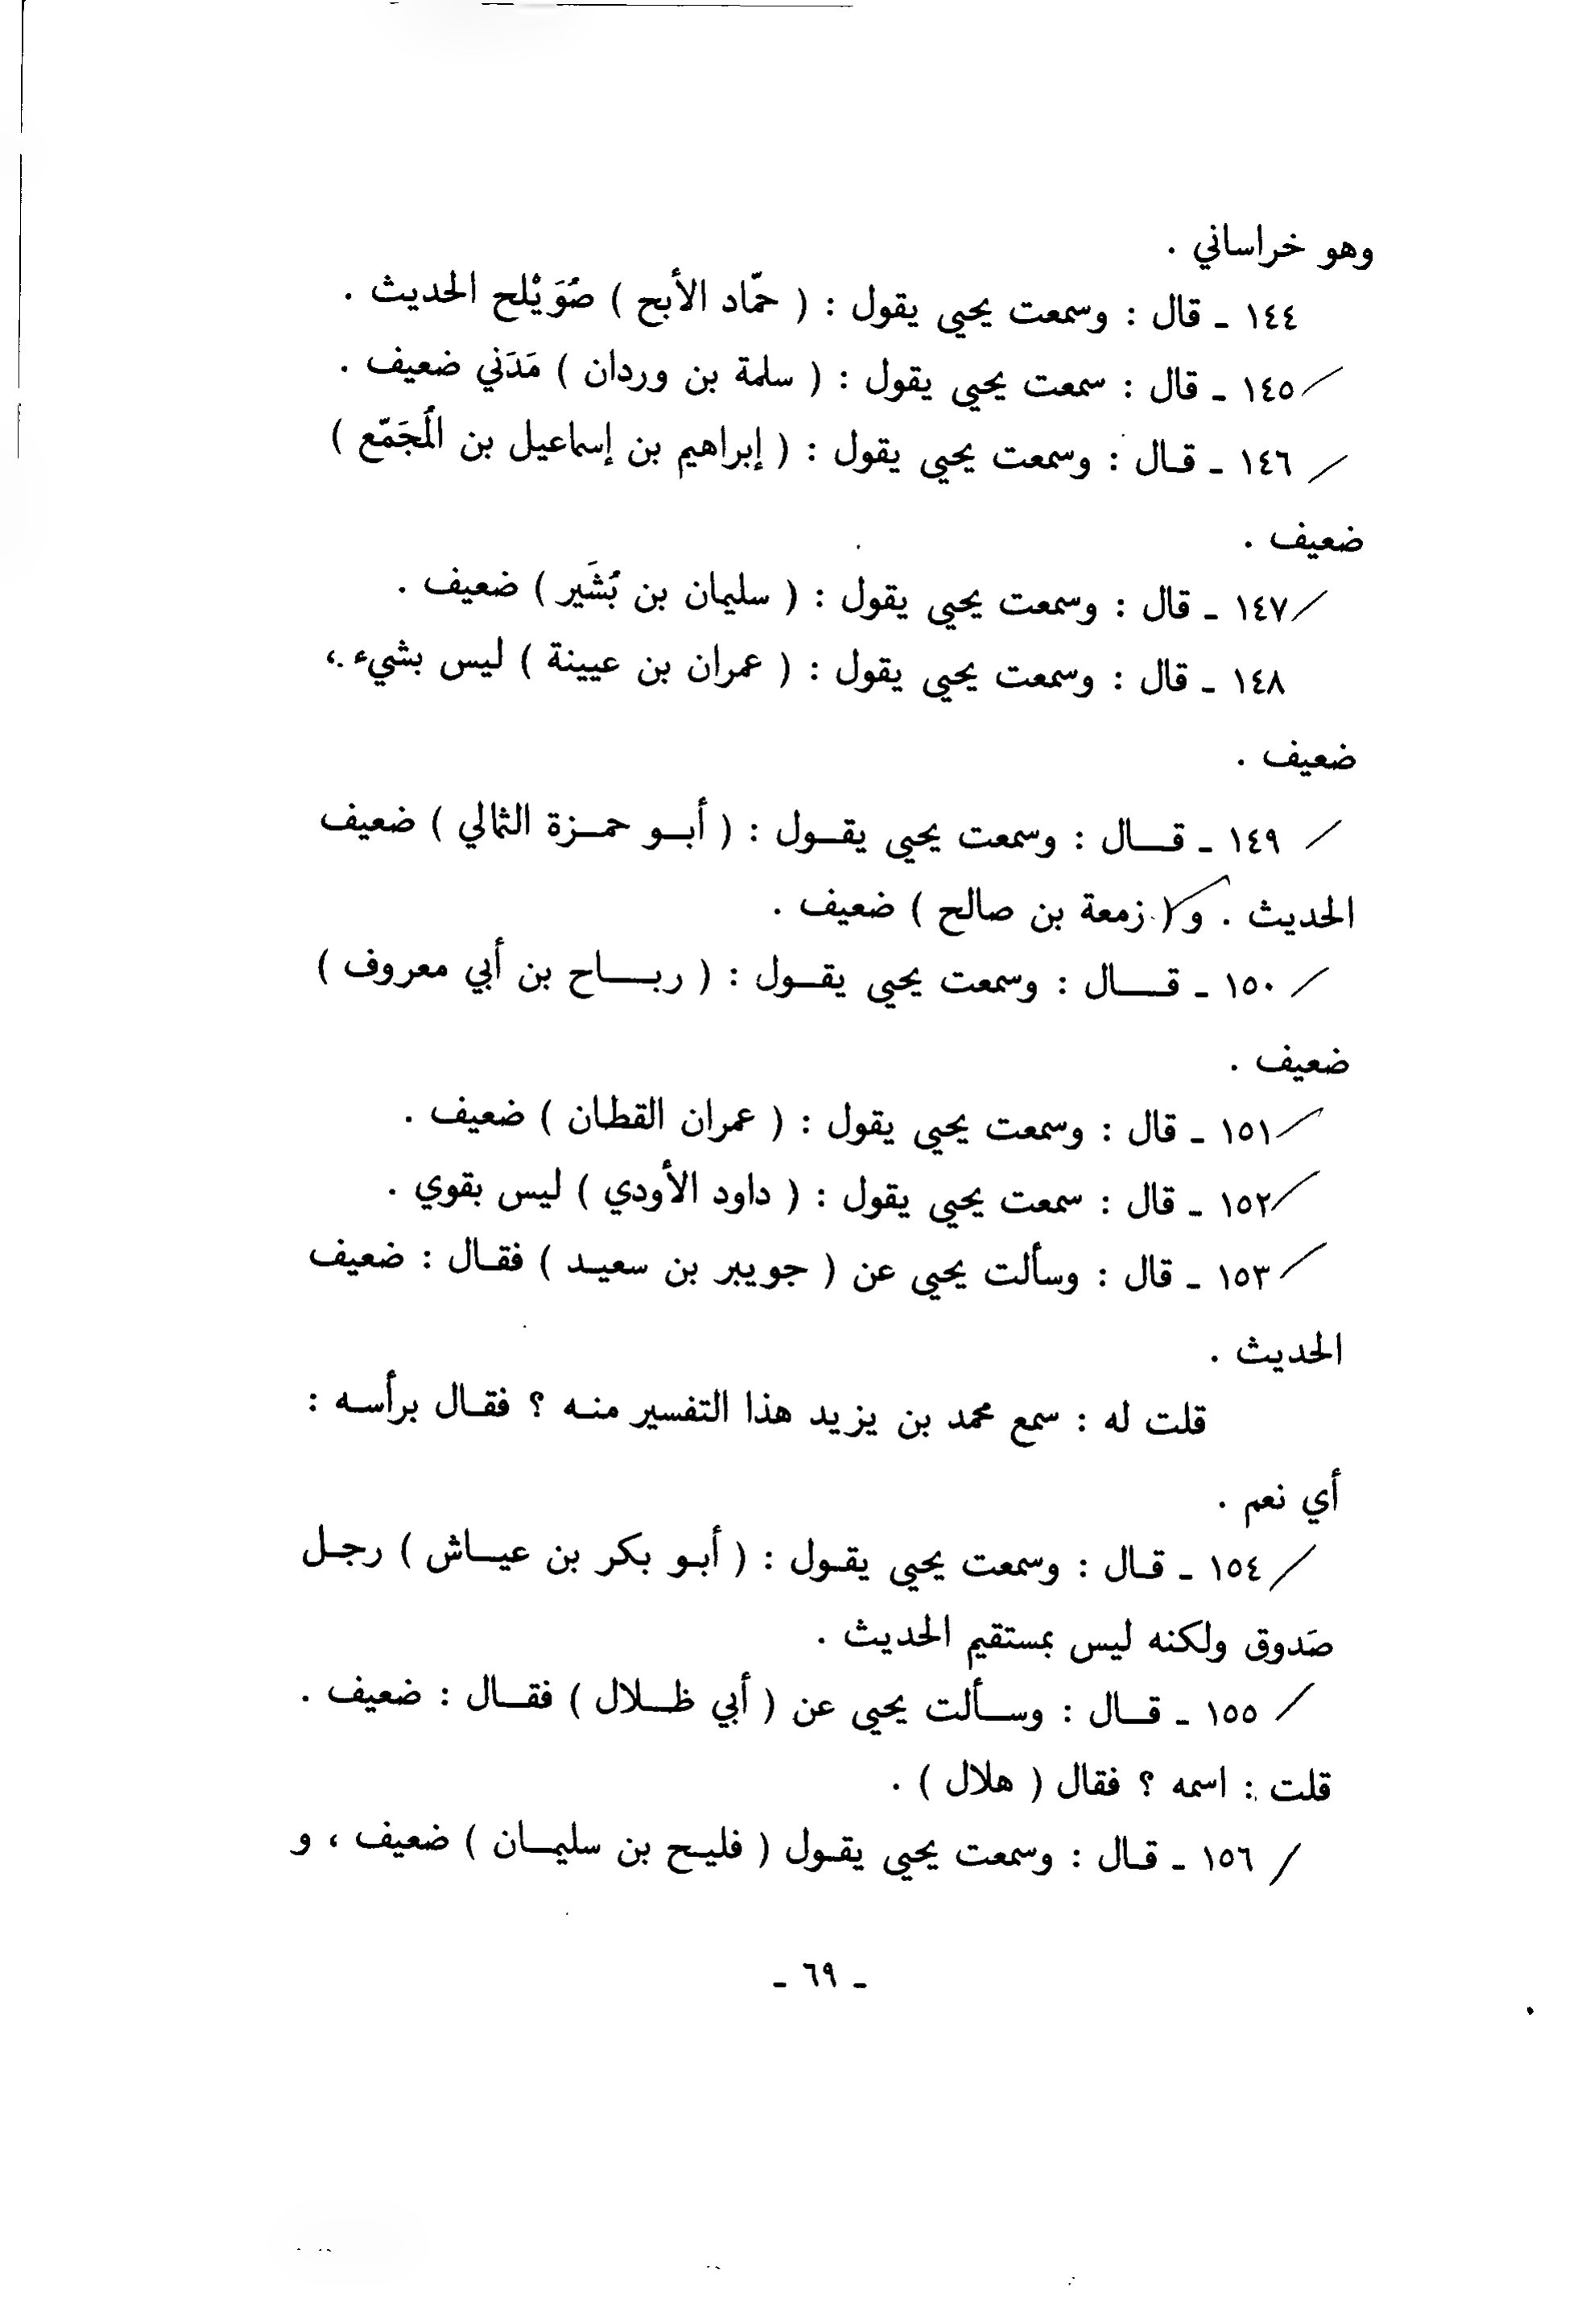 وهو خراساني .
١٤٤ ـ قال : وسمعت يحيى يقول : ( حمّاد الأبح ) صُوَيْلح الحديث .
١٤٥ ـ قال : سمعت يحيى يقول : ( سلمة بن وردان ) مَدَني ضعيف .
١٤٦ ـ قال : وسمعت يحيى يقول : ( إبراهيم بن إسماعيل بن المُجَمّع )
ضعيف .
١٤٧ ـ قال : وسمعت يحيى يقول : ( سليمان بن بُشَير ) ضعيف .
١٤٨ ـ قال : وسمعت يحيى يقول : ( عمران بن عيينة ) ليس بشيء .،
ضعيف .
١٤٩ ـ قال : وسمعت يحيى يقول : ( أبو حمزة الثمالي ) ضعيف
الحديث . و( زمعة بن صالح ) ضعيف .
١٥٠ ـ قال : وسمعت يحيى يقول : ( رباح بن أبي معروف )
ضعيف .
١٥١ ـ قال : وسمعت يحيى يقول : ( عمران القطان ) ضعيف .
١٥٢ ـ قال : سمعت يحيى يقول : ( داود الأودي ) ليس بقوي .
١٥٣ ـ قال : وسألت يحيى عن ( جويبر بن سعيد ) فقال : ضعيف
الحديث .
قلت له : سمع محمد بن يزيد هذا التفسير منه ؟ فقال برأسه :
أي نعم .
١٥٤ ـ قال : وسمعت يحيى يقول : ( أبو بكر بن عياش ) رجل
صَدوق ولكنه ليس بمستقيم الحديث .
١٥٥ ـ قال : وسألت يحيى عن ( أبي ظلال ) فقال : ضعيف .
قلت : اسمه ؟ فقال ( هلال ) .
١٥٦ ـ قال : وسمعت يحيى يقول ( فليح بن سليمان ) ضعيف ، و
ـ ٦٩ ـ